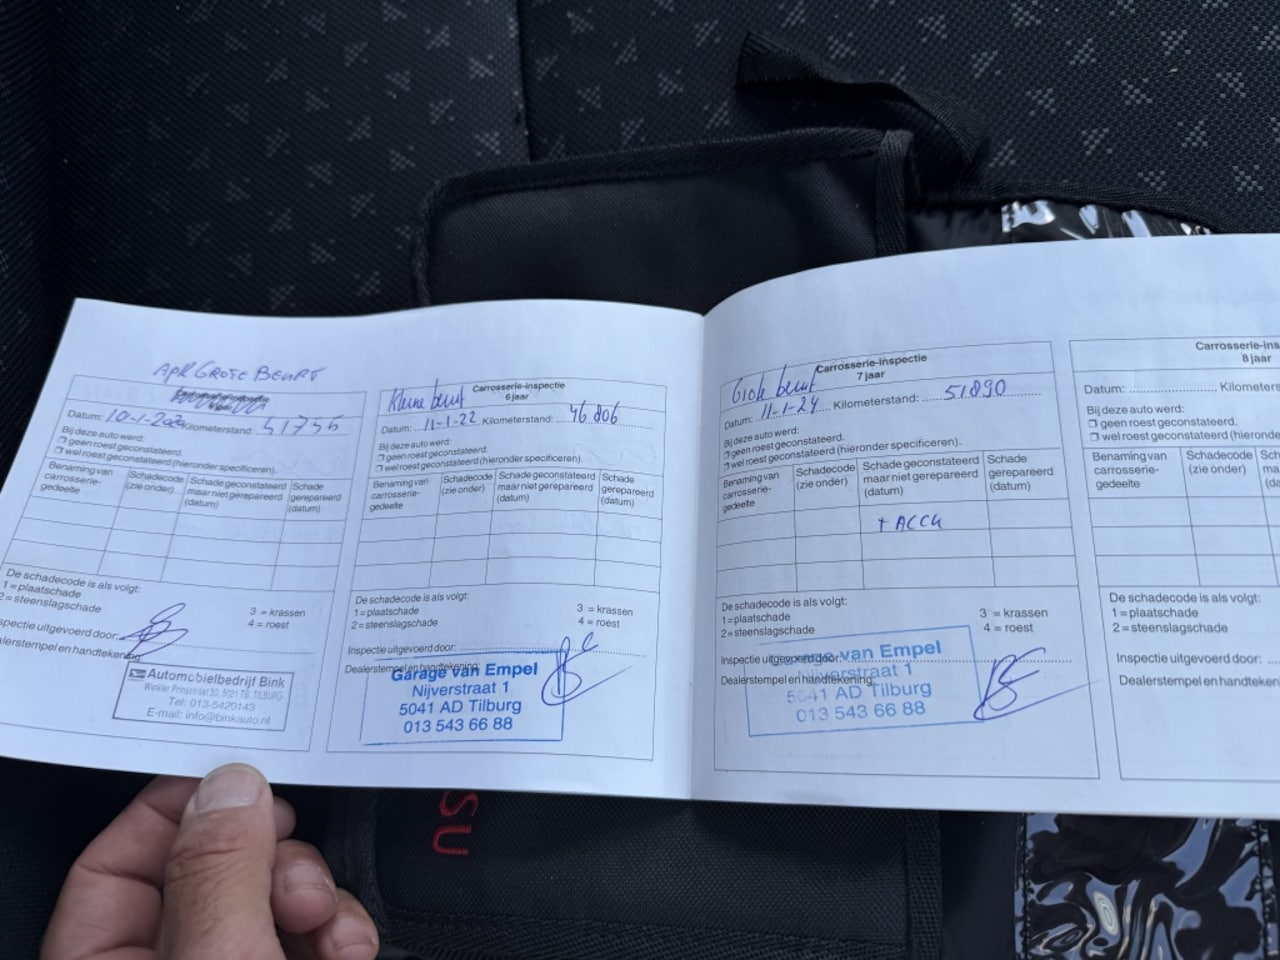 APK GROTE BEURT
Datum: 10-1-2020 Kilometerstand: 41736
Bij deze auto werd:
geen roest geconstateerd.
wel roest geconstateerd (hieronder specificeren).
Benaming van carrosserie-gedeelte
Schadecode (zie onder)
Schade geconstateerd maar niet gerepareerd (datum)
Schade gerepareerd (datum)
De schadecode is als volgt:
1 = plaatschade
2 = steenslagschade
3 = krassen
4 = roest
Inspectie uitgevoerd door:
Dealerstempel en handtekening:
Automobielbedrijf Bink
Tel: 013-5420143
E-mail: info@binkauto.nl
Kleine beurt
Carrosserie-inspectie
6 jaar
Datum: 11-1-22 Kilometerstand: 46806
Bij deze auto werd:
geen roest geconstateerd.
wel roest geconstateerd (hieronder specificeren).
Benaming van carrosserie-gedeelte
Schadecode (zie onder)
Schade geconstateerd maar niet gerepareerd (datum)
Schade gerepareerd (datum)
De schadecode is als volgt:
1 = plaatschade
2 = steenslagschade
3 = krassen
4 = roest
Inspectie uitgevoerd door:
Dealerstempel en handtekening:
Garage van Empel
Nijverstraat 1
5041 AD Tilburg
013 543 66 88
Grote beurt
Carrosserie-inspectie
7 jaar
Datum: 11-1-24 Kilometerstand: 51890
Bij deze auto werd:
geen roest geconstateerd.
wel roest geconstateerd (hieronder specificeren).
Benaming van carrosserie-gedeelte
Schadecode (zie onder)
Schade geconstateerd maar niet gerepareerd (datum)
Schade gerepareerd (datum)
+ ACCU
De schadecode is als volgt:
1 = plaatschade
2 = steenslagschade
3 = krassen
4 = roest
Inspectie uitgevoerd door:
Dealerstempel en handtekening:
Garage van Empel
Nijverstraat 1
5041 AD Tilburg
013 543 66 88
Carrosserie-ins
8 jaar
Datum: Kilometers
Bij deze auto werd:
geen roest geconstateerd.
wel roest geconstateerd (hieronde
Benaming van carrosserie-gedeelte
Schadecode (zie onder)
De schadecode is als volgt:
1 = plaatschade
2 = steenslagschade
Inspectie uitgevoerd door:
Dealerstempel en handtekening
SU